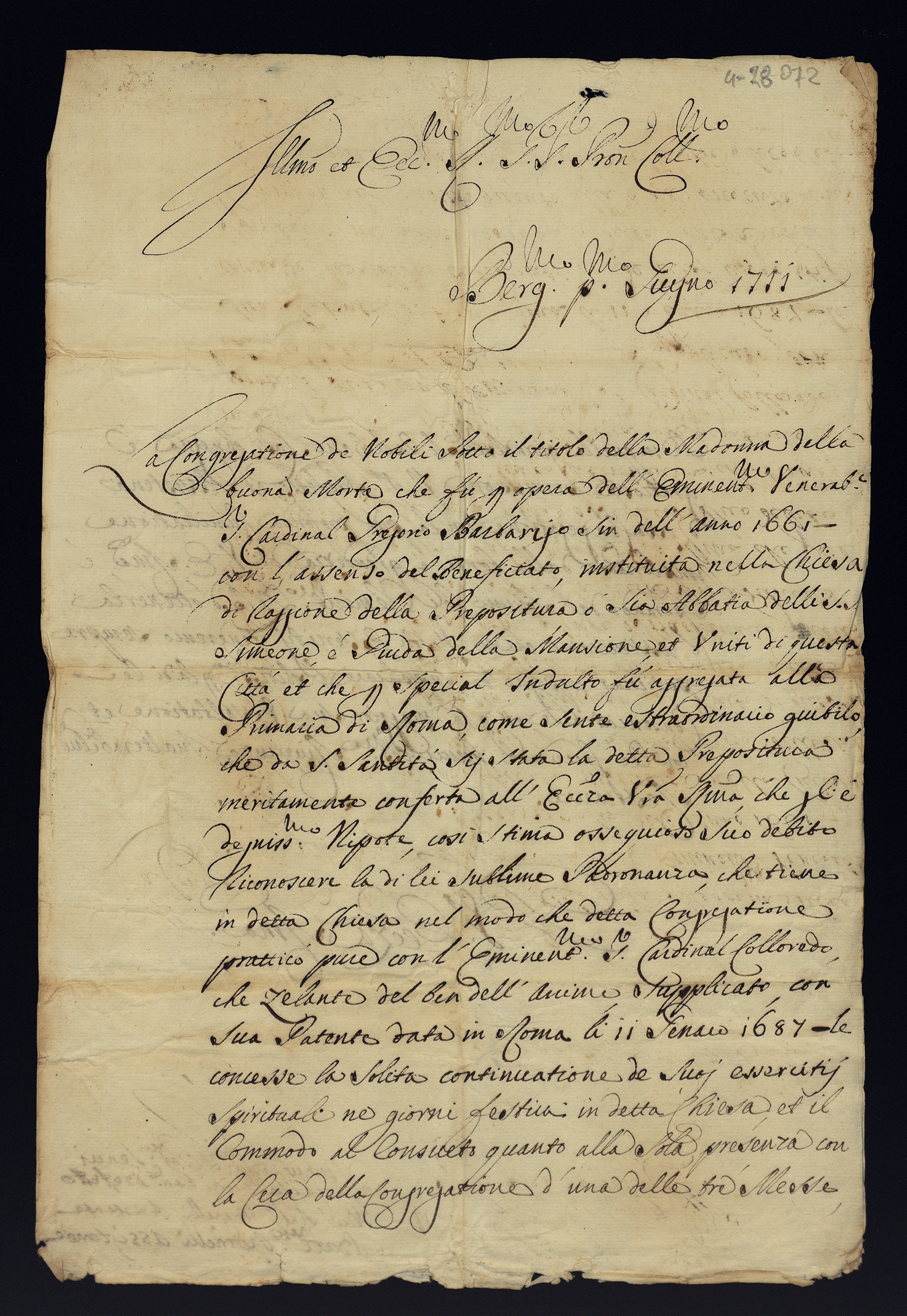 4-28 072
Illmo et Ecc.mo S. S.r Pron Coll.mo
Berg.mo p.mo Giugno 1711
La Congregatione de Nobili Sotto il titolo della Madonna della
buona Morte che fù p opera dell' Eminent.mo Venerab.e
S. Cardinal Gregorio Barbarigo Sin dell' anno 1661 –
con l'assenso del Beneficiato, instituita nella Chiesa
di Raggione della Prepositura ò Sia Abbatia delli S.S.
Simeone, é Giuda della Mansione et Uniti di questa
Città et che p special Indulto fù aggregata alla
Primaria di Roma, come Sente estraordinario giubilo,
che da S. Santità sij stata la detta Prepositura
meritamente conferta all' Ecc.za V.ra Ill.ma, che gl'é
degniss.mo Nipote, così stima ossequioso suo debito
Riconoscere la di lei sublime Padronanza, che tiene
in detta Chiesa nel modo che detta Congregatione
pratticò pure con l' Eminent.mo S.r Cardinal Colloredo,
che Zelante del ben dell' Anime, Supplicato, con
sua Patente data in Roma li 11 Genaro 1687 – le
concesse la solita continuatione de Suoj essercitij
spirituali ne giorni festivi in detta Chiesa, et il
Commodo al Consueto quanto alla Sola presenza con
la Cera della Congregatione d' una delle tre Messe,